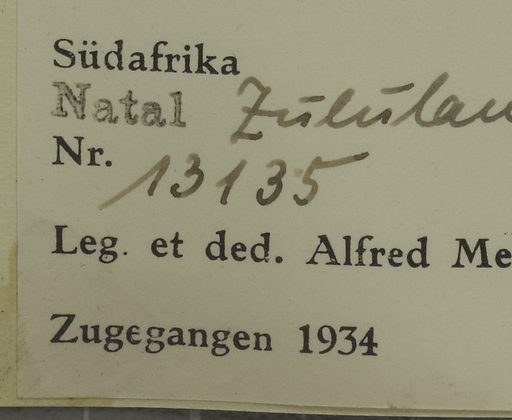 Südafrika
Natal Zululan
Nr. 13135
Leg. et ded. Alfred Me
Zugegangen 1934